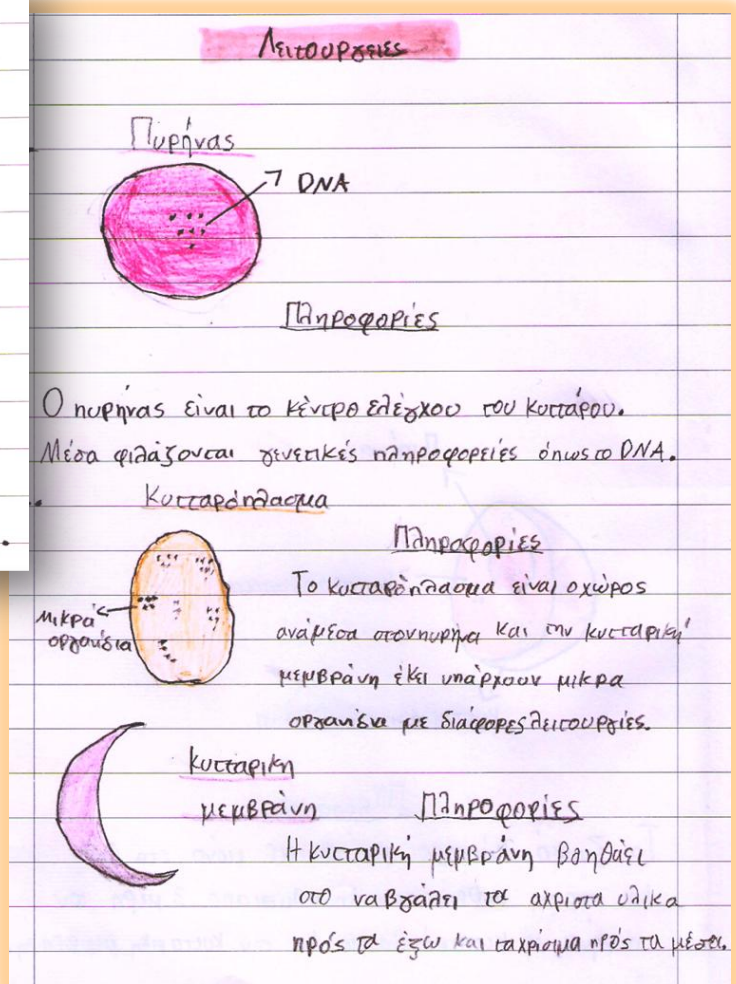 Λειτουργειες
Πυρήνας
DNA
Πληροφορίες
Ο πυρήνας είναι το κέντρο ελέγχου του κυττάρου.
Μέσα φιλάζονται γενετικές πληροφορείές όπως το DNA.
Κυτταρόπλασμα
Πληροφορίες
Το κυτταρόπλασμα είναι ο χώρος
μικρά
οργανίδια
ανάμεσα στον πυρήνα και την κυτταρική
μεμβράνη έκει υπάρχουν μικρα
οργανίδια με διάφορες λειτουργίες.
Κυτταρικη
μεμβράνη
Πληροφορίες
Η κυτταρική μεμβράνη βοηθάει
στο να βγάλει τα αχριστα υλικα
πρός τα έξω και τα χρίσιμα πρός τα μέσα.